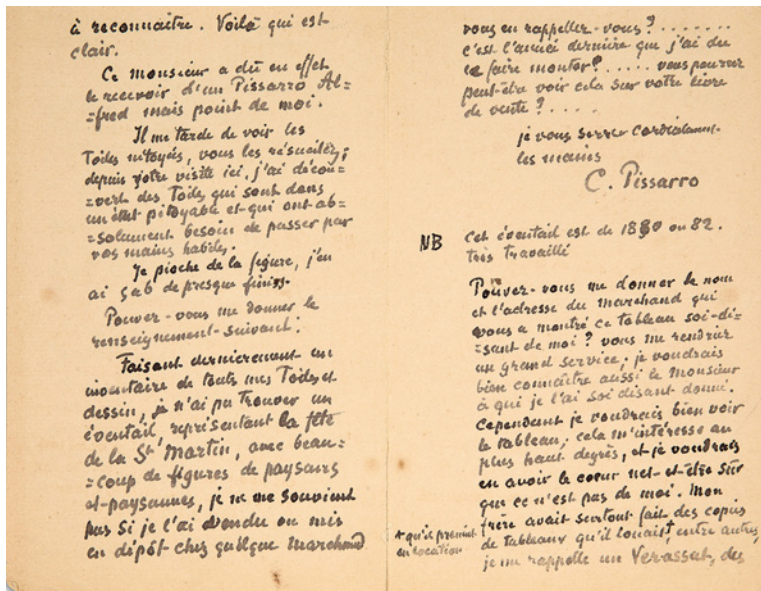 à reconnaitre. Voilà qui est
clair.
Ce monsieur a dû en effet
le recevoir d'un Pissarro Al=
=fred mais point de moi.
Il me tarde de voir les
Toiles nétoyés, vous les résuscitez;
depuis votre visite ici, j'ai décou=
=vert des Toiles qui sont dans
un état pitoyable et qui ont ab=
=solument besoin de passer par
vos mains habiles.
Je pioche de la figure, j'en
ai 5 ab 6 de presque finiss.
Pouvez-vous me donner le
renseignement suivant:
Faisant dernierement un
inventaire de touts mes Toiles et
dessin, je n'ai pu trouver un
éventail, représentant la fête
de la St Martin, avec beau=
=coup de figures de paysans
et paysannes, je ne me souvient
pas si je l'ai vendu ou mis
en dépôt chez quelque marchand
vous en rappeller-vous? ........
c'est l'année dernière que j'ai du
le faire monter? ..... vous pourrez
peut-être voir cela sur votre livre
de vente? .....
je vous serre cordialement
les mains
C. Pissarro
NB Cet éventail est de 1880 ou 82.
très travaillé
Pouvez-vous me donner le nom
et l'adresse du marchand qui
vous a montré ce tableau soi-di=
=sant de moi? vous me rendriez
un grand service; je voudrais
bien connaître aussi le monsieur
à qui je l'ai soi disant donné.
Cependant je voudrais bien voir
le tableau; cela m'intéresse au
plus haut degrès, et je voudrais
en avoir le coeur net et être sûr
que ce n'est pas de moi. Mon
frère avait surtout fait des copies
de tableaux qu'il louait+, entre autres,
je me rappelle un Verassat, des
+ qu'il prenait
en location